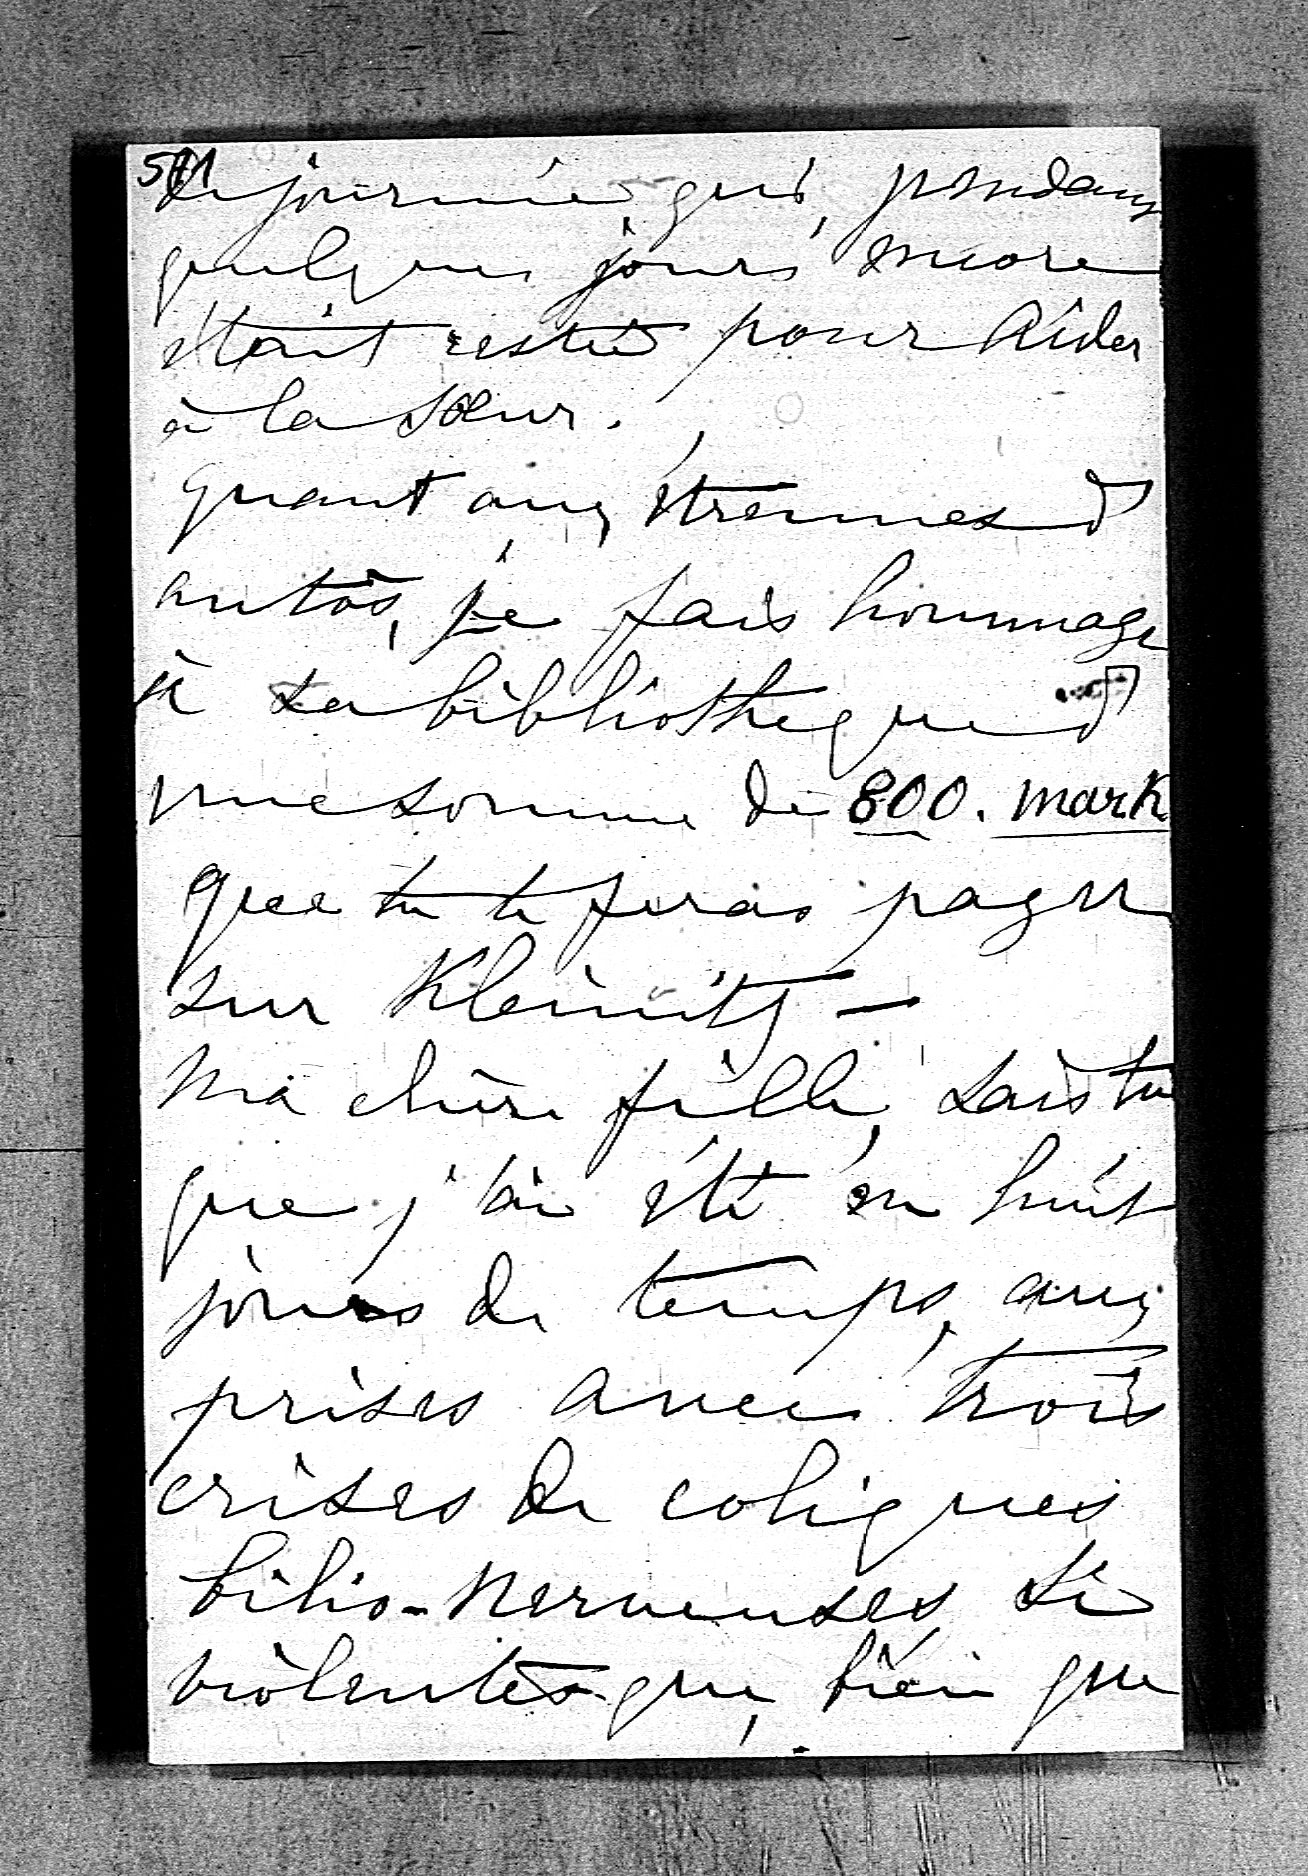 511
de journée, qui, pendant
quelques jours encore
était restée pour aider
à la sœur.
Quant aux étrennes d'
antàs, je fais hommage
à sa bibliothèque d'
une somme de 800. mark
que tu te feras payer
sur Kleinitz –
Ma chère fille, sais tu
que j'ai été en huit
jours de temps, aux
prises avec trois
crises de coliques
bilio-nerveuses si
violentes que, bien que